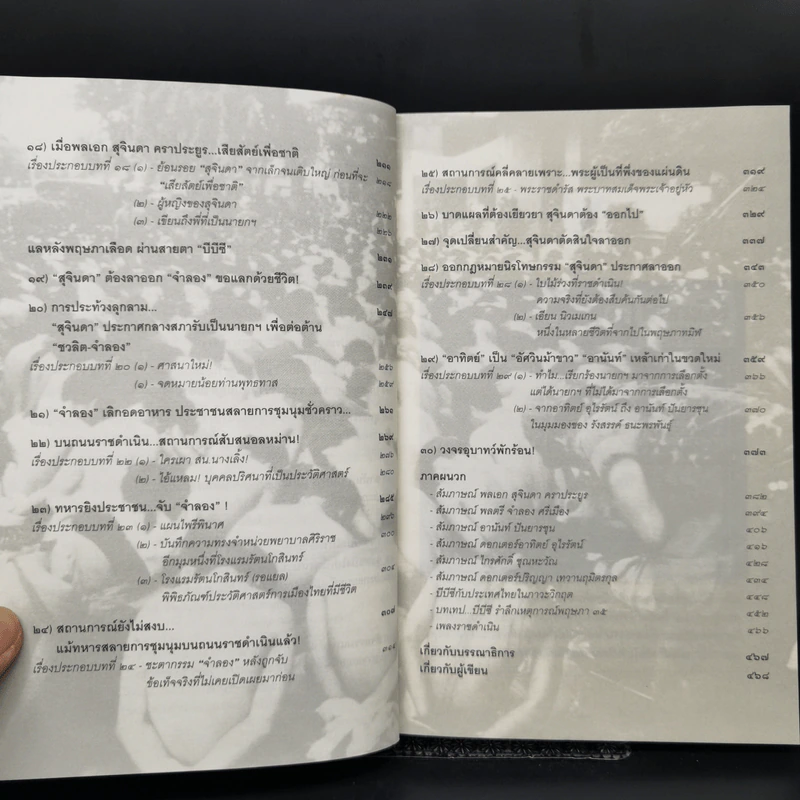 ๑๘) เมื่อพลเอก สุจินดา คราประยูร...เสียสัตย์เพื่อชาติ ๒๑๑
เรื่องประกอบบทที่ ๑๘ (๑) - ย้อนรอย “สุจินดา” จากเล็กจนเติบใหญ่ ก่อนที่จะ ๒๑๘
“เสียสัตย์เพื่อชาติ”
(๒) - ผู้หญิงของสุจินดา ๒๒๒
(๓) - เขียนถึงพี่ที่เป็นนายกฯ ๒๒๖
แลหลังพฤษภาเลือด ผ่านสายตา “บีบีซี” ๒๓๑
๑๙) “สุจินดา” ต้องลาออก “จำลอง” ขอแลกด้วยชีวิต! ๒๓๙
๒๐) การประท้วงลุกลาม... ๒๔๗
“สุจินดา” ประกาศกลางสภารับเป็นนายกฯ เพื่อต่อต้าน
“ชวลิต-จำลอง”
เรื่องประกอบบทที่ ๒๐ (๑) - ศาสนาใหม่! ๒๕๖
(๑) - จดหมายน้อยท่านพุทธทาส ๒๕๙
๒๑) “จำลอง” เลิกอดอาหาร ประชาชนสลายการชุมนุมชั่วคราว... ๒๖๑
๒๒) บนถนนราชดำเนิน...สถานการณ์สับสนอลหม่าน! ๒๖๙
เรื่องประกอบบทที่ ๒๒ (๑) - ใครเผา สน.นางเลิ้ง! ๒๗๖
(๒) - ไอ้แหลม! บุคคลปริศนาที่เป็นประวัติศาสตร์ ๒๘๐
๒๓) ทหารยิงประชาชน...จับ “จำลอง” ! ๒๘๕
เรื่องประกอบบทที่ ๒๓ (๑) - แผนไพรีพินาศ ๒๙๖
(๒) - บันทึกความทรงจำหน่วยพยาบาลศิริราช ๓๐๐
อีกมุมหนึ่งที่โรงแรมรัตนโกสินทร์
(๓) - โรงแรมรัตนโกสินทร์ (รอแยล) ๓๐๔
พิพิธภัณฑ์ประวัติศาสตร์การเมืองไทยที่มีชีวิต
๒๔) สถานการณ์ยังไม่สงบ... ๓๐๗
แม้ทหารสลายการชุมนุมบนถนนราชดำเนินแล้ว!
เรื่องประกอบบทที่ ๒๔ - ชะตากรรม “จำลอง” หลังถูกจับ
ข้อเท็จจริงที่ไม่เคยเปิดเผยมาก่อน
๒๕) สถานการณ์คลี่คลายเพราะ...พระผู้เป็นที่พึ่งของแผ่นดิน ๓๑๙
เรื่องประกอบบทที่ ๒๕ - พระราชดำรัส พระบาทสมเด็จพระเจ้าอยู่หัว ๓๒๔
๒๖) บาดแผลที่ต้องเยียวยา สุจินดาต้อง “ออกไป” ๓๒๙
๒๗) จุดเปลี่ยนสำคัญ...สุจินดาตัดสินใจลาออก ๓๓๗
๒๘) ออกกฎหมายนิรโทษกรรม “สุจินดา” ประกาศลาออก ๓๔๓
เรื่องประกอบบทที่ ๒๘ (๑) - ใบไม้ร่วงที่ราชดำเนิน! ๓๕๐
ความจริงที่ยังต้องสืบค้นกันต่อไป
(๒) - เอียน นิวเมเกน ๓๕๖
หนึ่งในหลายชีวิตที่จากไปในพฤษภาทมิฬ
๒๙) “อาทิตย์” เป็น “อัศวินม้าขาว” “อานันท์” เหล้าเก่าในขวดใหม่ ๓๕๙
เรื่องประกอบบทที่ ๒๙ (๑) - ทำไม...เรียกร้องนายกฯ มาจากการเลือกตั้ง ๓๖๖
แต่ได้นายกฯ ที่ไม่ได้มาจากการเลือกตั้ง
(๒) - จากอาทิตย์ อุไรรัตน์ ถึง อานันท์ ปันยารชุน ๓๗๐
ในมุมมองของ รังสรรค์ ธนะพรพันธุ์
๓๐) วงจรอุบาทว์พักร้อน! ๓๗๓
ภาคผนวก
- สัมภาษณ์ พลเอก สุจินดา คราประยูร ๓๘๒
- สัมภาษณ์ พลตรี จำลอง ศรีเมือง ๓๙๔
- สัมภาษณ์ อานันท์ ปันยารชุน ๔๐๖
- สัมภาษณ์ ดอกเตอร์อาทิตย์ อุไรรัตน์ ๔๑๖
- สัมภาษณ์ ไกรศักดิ์ ชุณหะวัณ ๔๒๘
- สัมภาษณ์ ดอกเตอร์ปริญญา เทวานฤมิตรกุล ๔๓๔
- บีบีซีกับประเทศไทยในภาวะวิกฤต ๔๔๘
- บทเทป...บีบีซี รำลึกเหตุการณ์พฤษภา ๓๕ ๔๕๒
- เพลงราชดำเนิน ๔๖๖
เกี่ยวกับบรรณาธิการ ๔๖๗
เกี่ยวกับผู้เขียน ๔๖๘